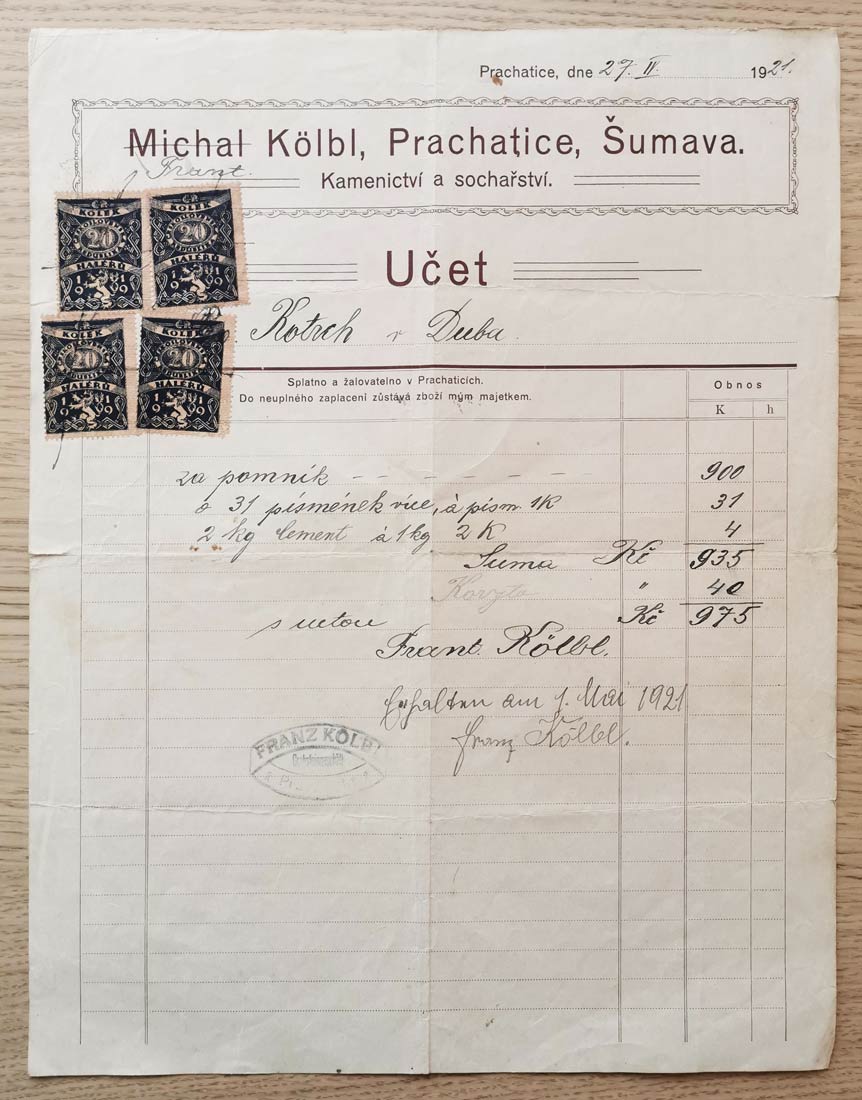 Prachatice, dne 27. IV. 1921.
Michal Kölbl, Prachatice, Šumava.
Frant.
Kamenictví a sochařství.
Učet
Kotrch v Duba.
ČR KOLEK 20 HALÉŘŮ 1919
ČR KOLEK 20 HALÉŘŮ 1919
ČR KOLEK 20 HALÉŘŮ 1919
ČR KOLEK 20 HALÉŘŮ 1919
Splatno a žalovatelno v Prachaticích.
Do neuplného zaplacení zůstává zboží mým majetkem.
Obnos
K h
za pomník - - - - - - 900
o 31 písmének více, à písm. 1K 31
2 kg Cement à 1 kg 2 K 4
Suma Kč 935
Koryto " 40
Kč 975
s uctou
Frant. Kölbl.
Erhalten am 1. Mai 1921
Franz Kölbl.
FRANZ KÖLBL